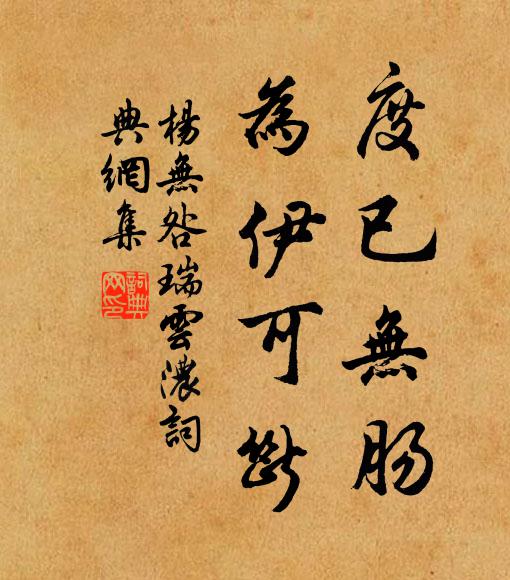 度已無肠
為伊可斷
楊無咎瑞雲濃詞
典網集
詞典
网印